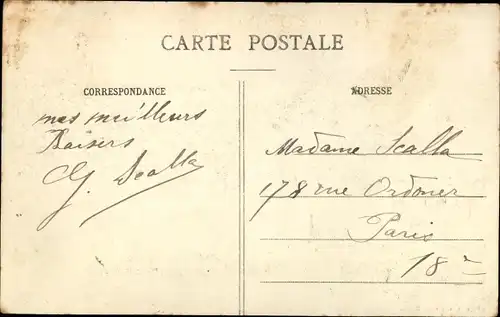 CARTE POSTALE
CORRESPONDANCE
mes meilleurs
Baisers
G. Scalla
ADRESSE
Madame Scalla
178 rue Ordener
Paris
18e